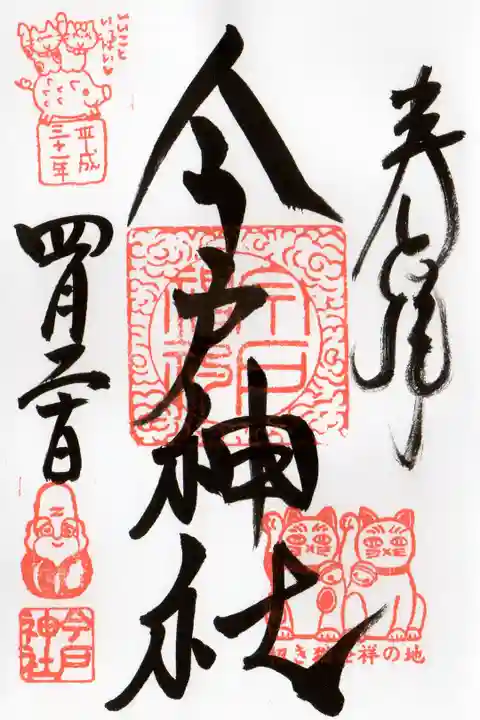 奉拝
今戸神社
いいこと
いっぱい♥
平成
三十一年
四月二十日
今戸
神社
今戸
神社
招き猫発祥の地